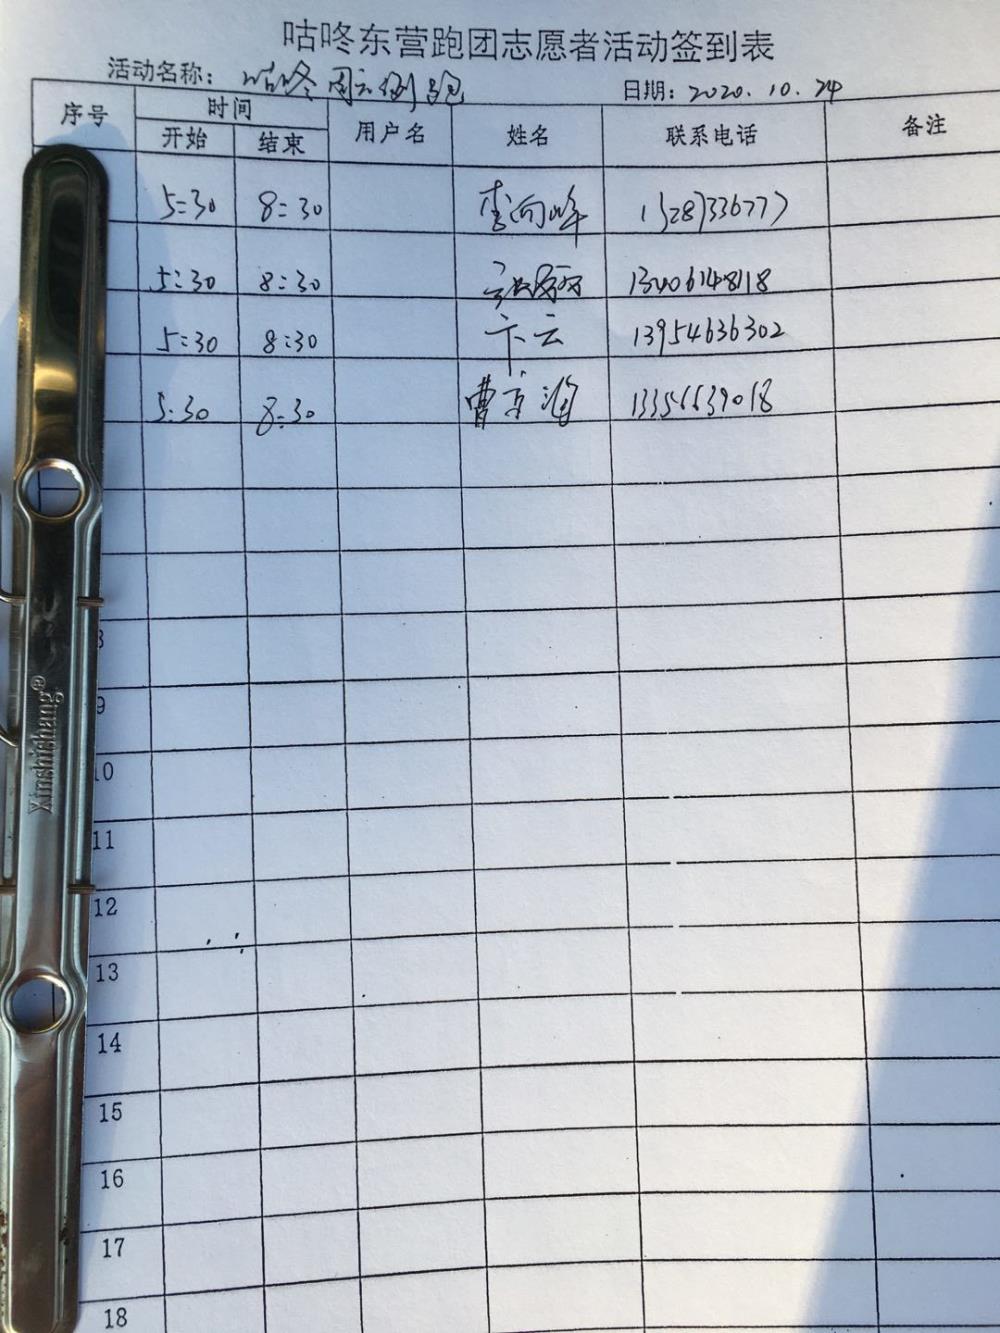 咕咚东营跑团志愿者活动签到表
活动名称：咕咚周六例跑 日期：2020.10.24
序号 时间 用户名 姓名 联系电话 备注
开始 结束
5:30 8:30 李向峰
5:30 8:30 丽 13406148118
5:30 8:30 卞云 13954636302
5:30 8:30 曹京 13356639018
9
10
11
12
13
14
15
16
17
18
Xinshishang®